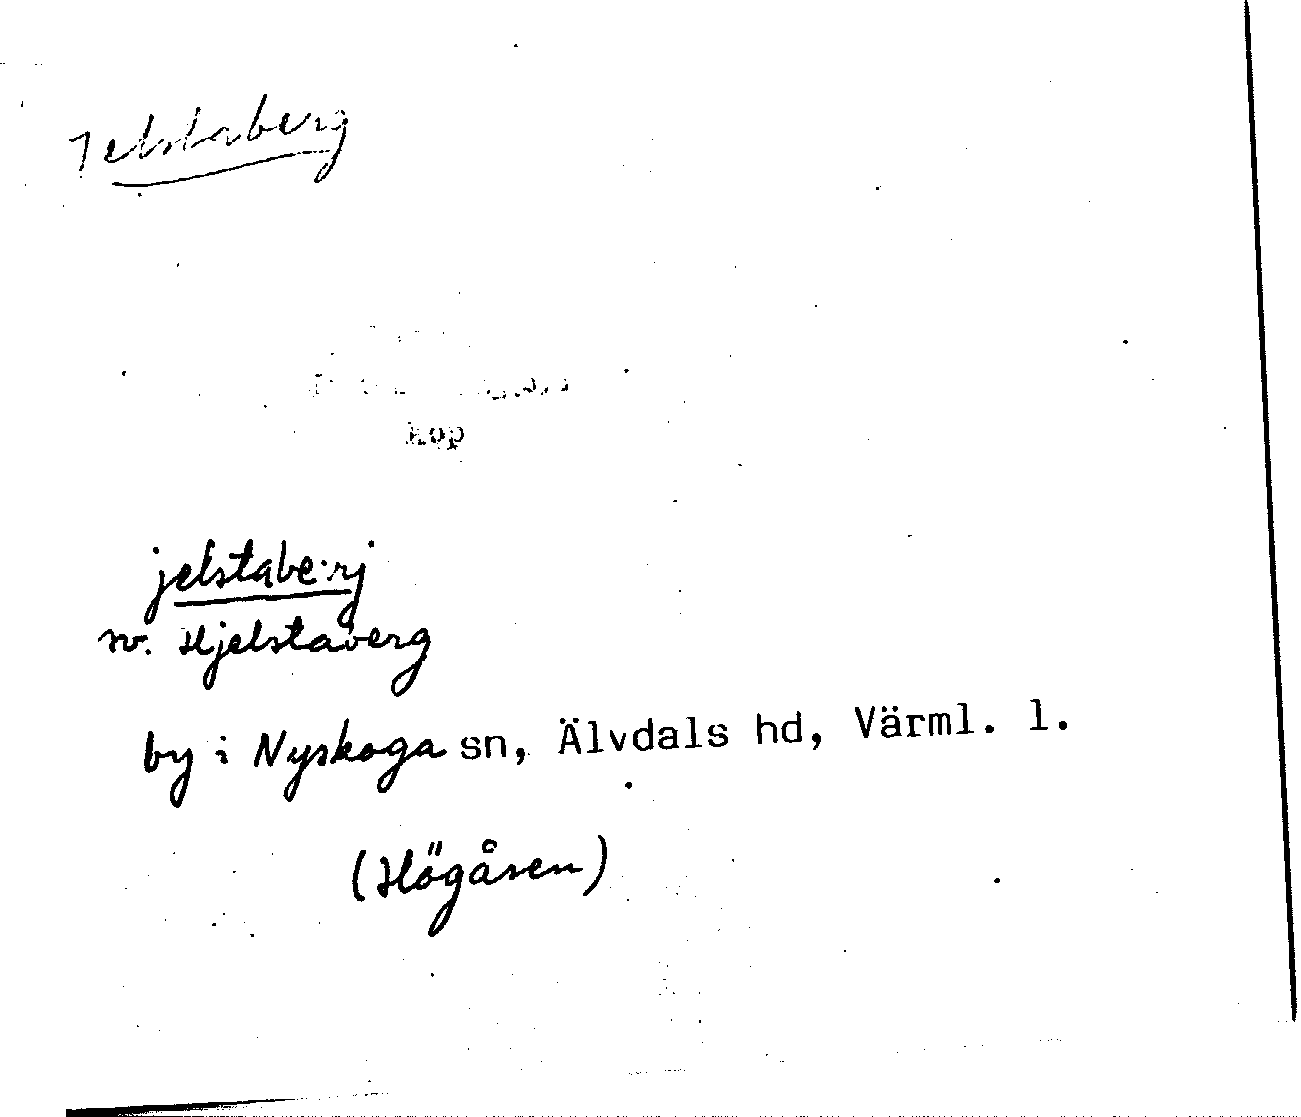 Jelstaberg
kop
jelstabe·rj
sv. Hjelstaberg
by i Nyskoga sn, Älvdals hd, Värml. l.
(Högåsen)